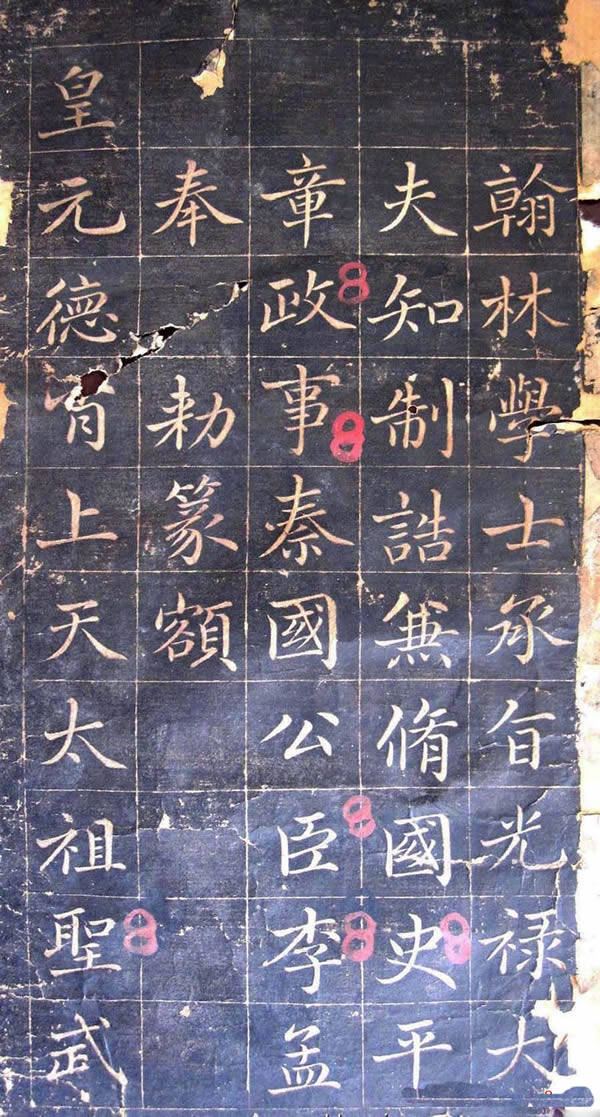 翰林學士承㫖光禄大
夫知制誥兼脩國史平
章政事秦國公臣李孟
奉 勑篆額
皇元德肖上天太祖聖武